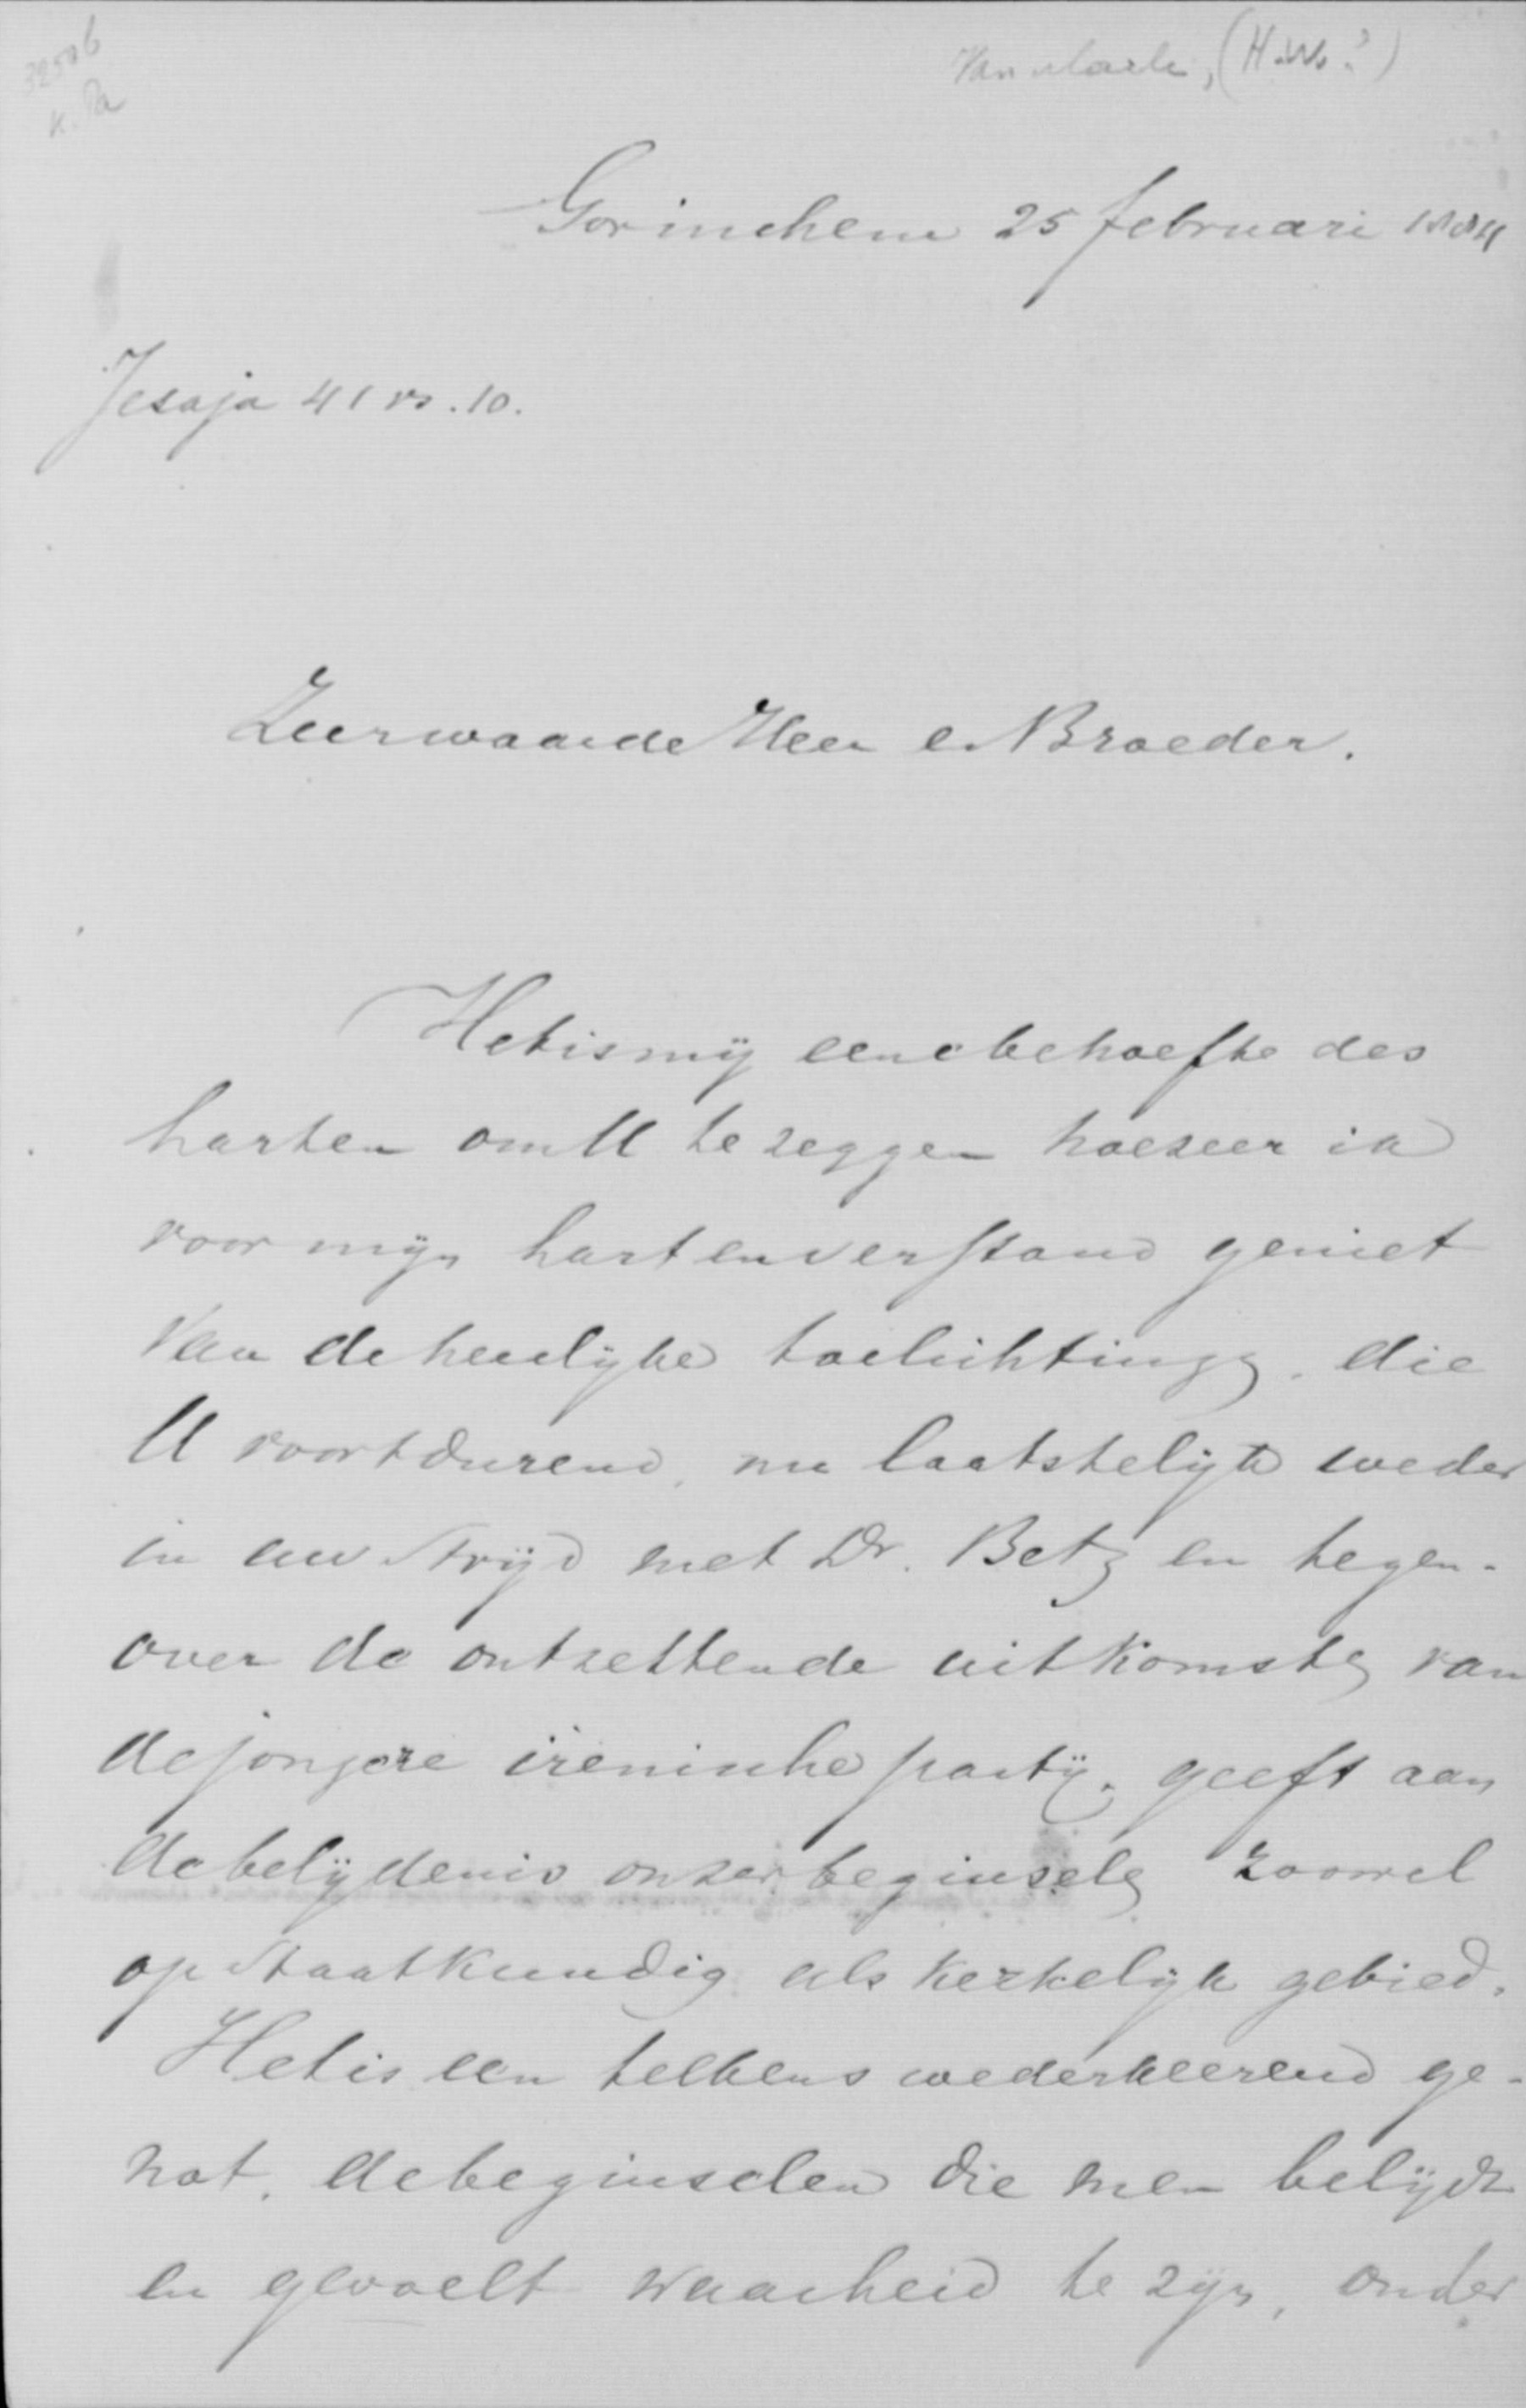 Van (H.W.?)
K. Pa
Gorinchem 25 februari 1884
Jesaja 41 vs. 10.
Zeerwaarde Heer en Broeder.
Het is mij eene behoefte des
harten om U te zeggen hoezeer ik
voor mijn hart en verstand geniet
van de heerlijke toelichting, die
U voortdurend, nu laatstelijk weder
in uw strijd met Dr. Betz en tegen-
over de ontzettende uitkomsten van
de jongere irenische partij, geeft aan
de belijdenis onzer beginselen zoowel
op staatkundig als kerkelijk gebied.
Het is een telkens wederkeerend ge-
not, de beginselen die men belijdt
en gevoelt waarheid te zijn, onder